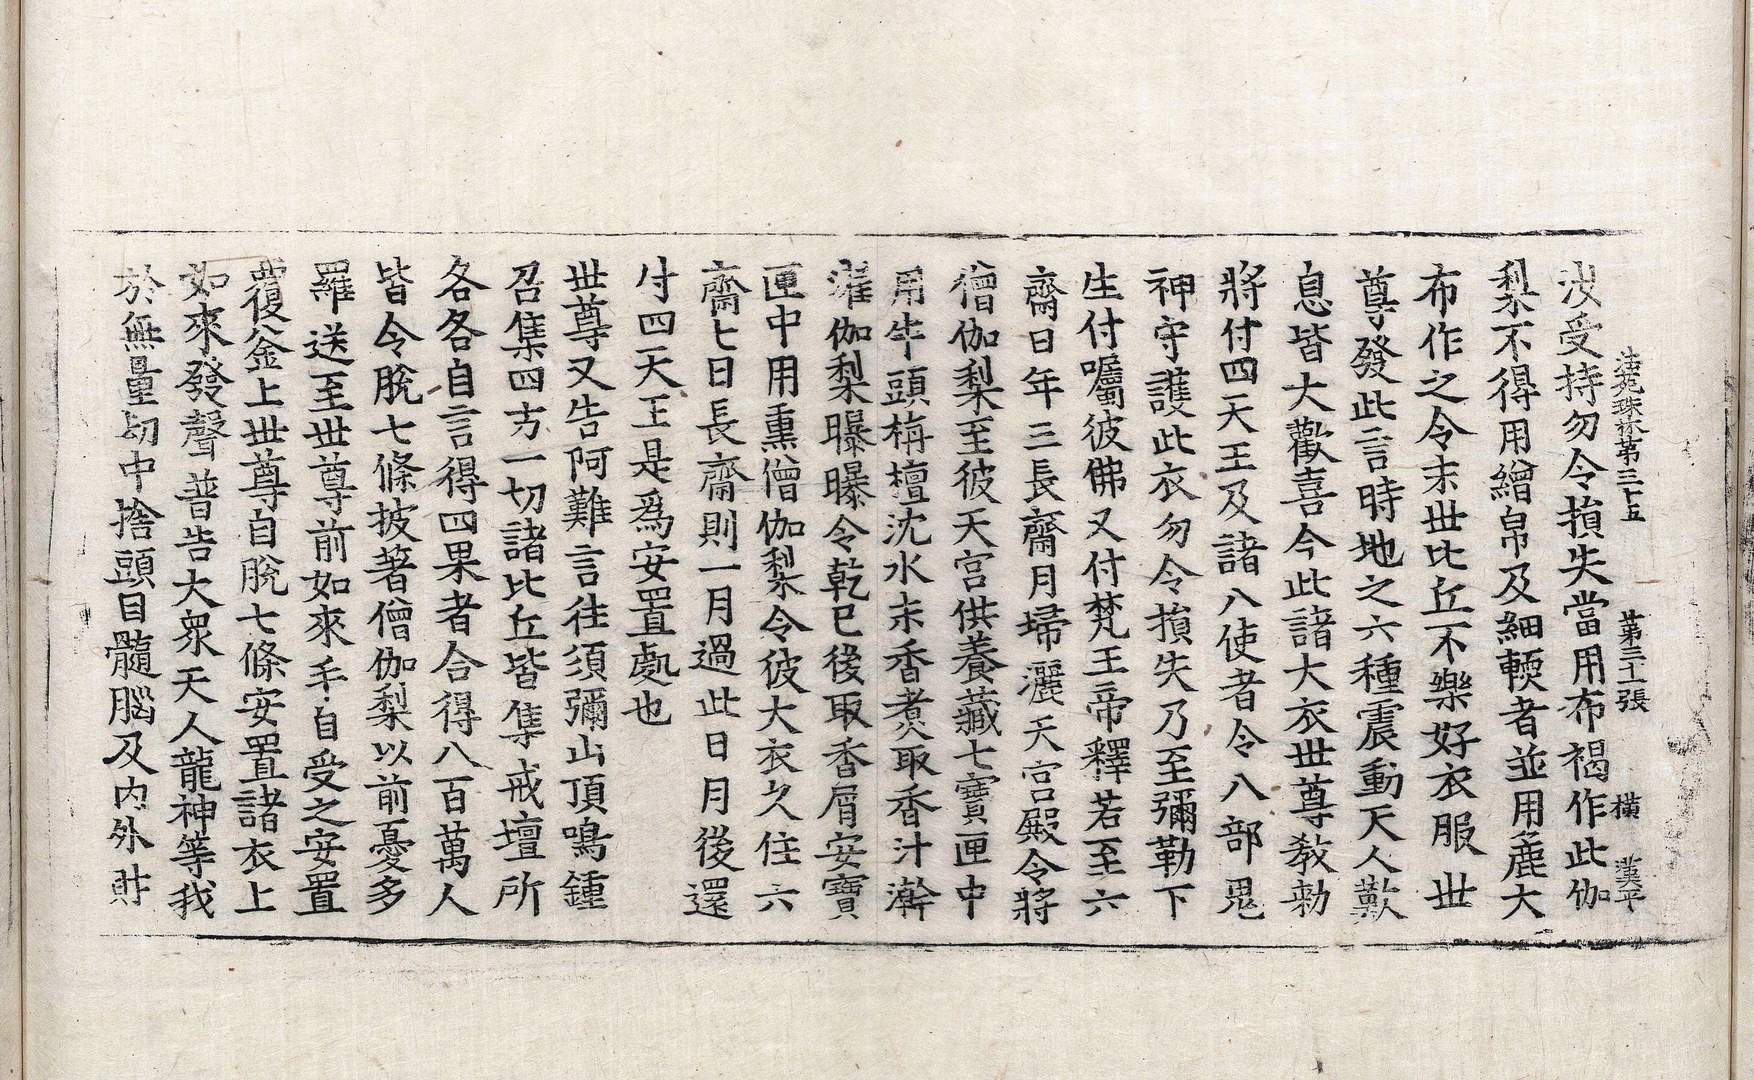 法苑珠林第三十五　第三十張　橫　漢平
汝受持勿令損失當用布褐作此伽
梨不得用繒帛及細輭者並用麁大
布作之令末世比丘不樂好衣服世
尊發此言時地之六種震動天人歎
息皆大歡喜今此諸大衣世尊教勑
將付四天王及諸八使者令八部鬼
神守護此衣勿令損失乃至彌勒下
生付囑彼佛又付梵王帝釋若至六
齋日年三長齋月埽灑天宮殿令將
僧伽梨至彼天宮供養藏七寶匣中
用牛頭栴檀沈水末香煑取香汁澣
濯伽梨曝曝令乾已後取香屑安寶
匣中用熏僧伽梨令彼大衣久住六
齋七日長齋則一月過此日月後還
付四天王是爲安置處也
世尊又告阿難言往須彌山頂鳴鍾
召集四方一切諸比丘皆集戒壇所
各各自言得四果者合得八百萬人
皆令脫七條披著僧伽梨以前憂多
羅送至世尊前如來手自受之安置
覆釜上世尊自脫七條安置諸衣上
如來發聲普告大衆天人龍神等我
於無量刧中捨頭目髓腦及內外財